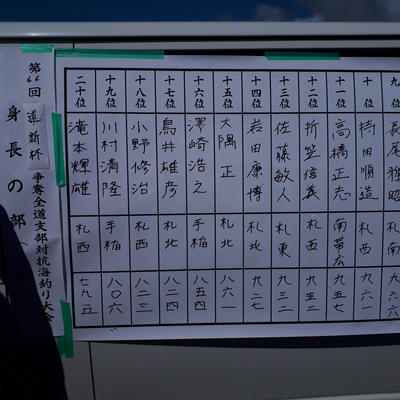 第66回 道新杯 争奪全道支部対抗海釣り大会
身長の部
九位 長尾雅昭 札南 九六六
十位 持田順造 札西 九六一
十一位 高橋正志 南帯広 九五七
十二位 折笠信義 札西 九五二
十三位 佐藤敏人 札東 九三二
十四位 岩田康博 札北 九二七
十五位 大隅正 札北 八六一
十六位 澤崎浩之 手稲 八五四
十七位 鳥井雄彦 札北 八二四
十八位 小野修治 札西 八二三
十九位 川村清隆 手稲 八〇六
二十位 滝本輝雄 札西 七九五